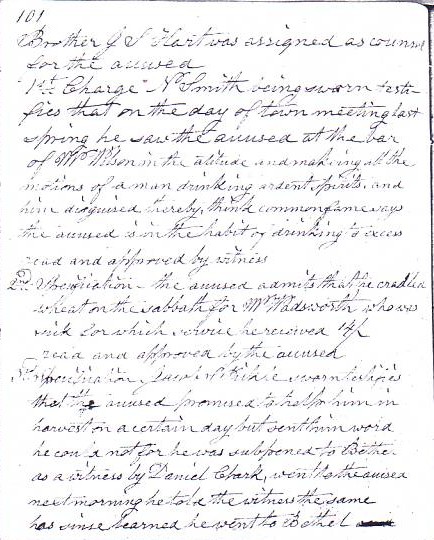 101
Brother J S Hart was assigned as counsel
for the accused
1st Charge N Smith being sworn testi
fies that on the day of town meeting last
spring he saw the accused at the bar
of Mr Wilson in the atitude and making all the
motions of a man drinking ardent spirits, and
him disguised thereby, think common fame says
the accused is in the habit of drinking to excess
read and approved by witness
2nd Specification - the accused admits that he cradled
wheat on the sabbath for Mr Wadsworth who was
sick for which service he received 14/
read and approved by the accused
Specification Jacob sworn testifies
that the accused promised to help him in
harvest on a certain day but sent him word
he could not for he was subpened to Bethel
as a witness by Daniel Clark, went to the accused
next morning he told the witness the same
has sinse learned he went to Bethel